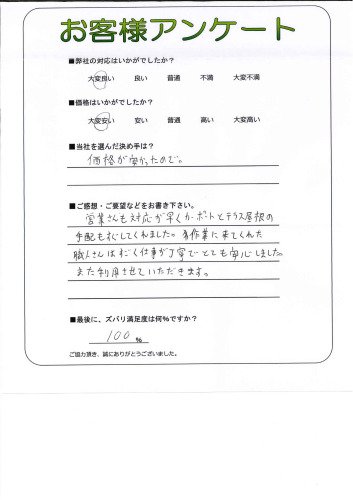 お客様アンケート
■弊社の対応はいかがでしたか？
大変良い 良い 普通 不満 大変不満
■価格はいかがでしたか？
大変安い 安い 普通 高い 大変高い
■当社を選んだ決め手は？
価格が安かったので。
■ご感想・ご要望などをお書き下さい。
営業さんも対応が早くカーポートとテラス屋根の
手配もすぐしてくれました。 作業に来てくれた
職人さんはすごく仕事が丁寧でとても安心しました。
また利用させていただきます。
■最後に、ズバリ満足度は何％ですか？
100 %
ご協力頂き、誠にありがとうございました。